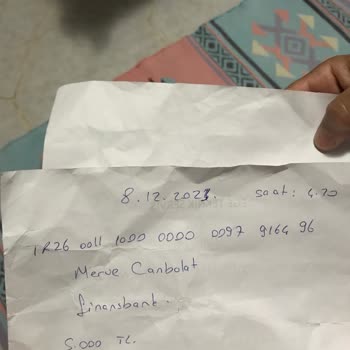 8.12.2023. saat: 4.20
TR26 0011 1000 0000 0097 9164 96
Merve Canbolat
finansbank.
5.000 TL.